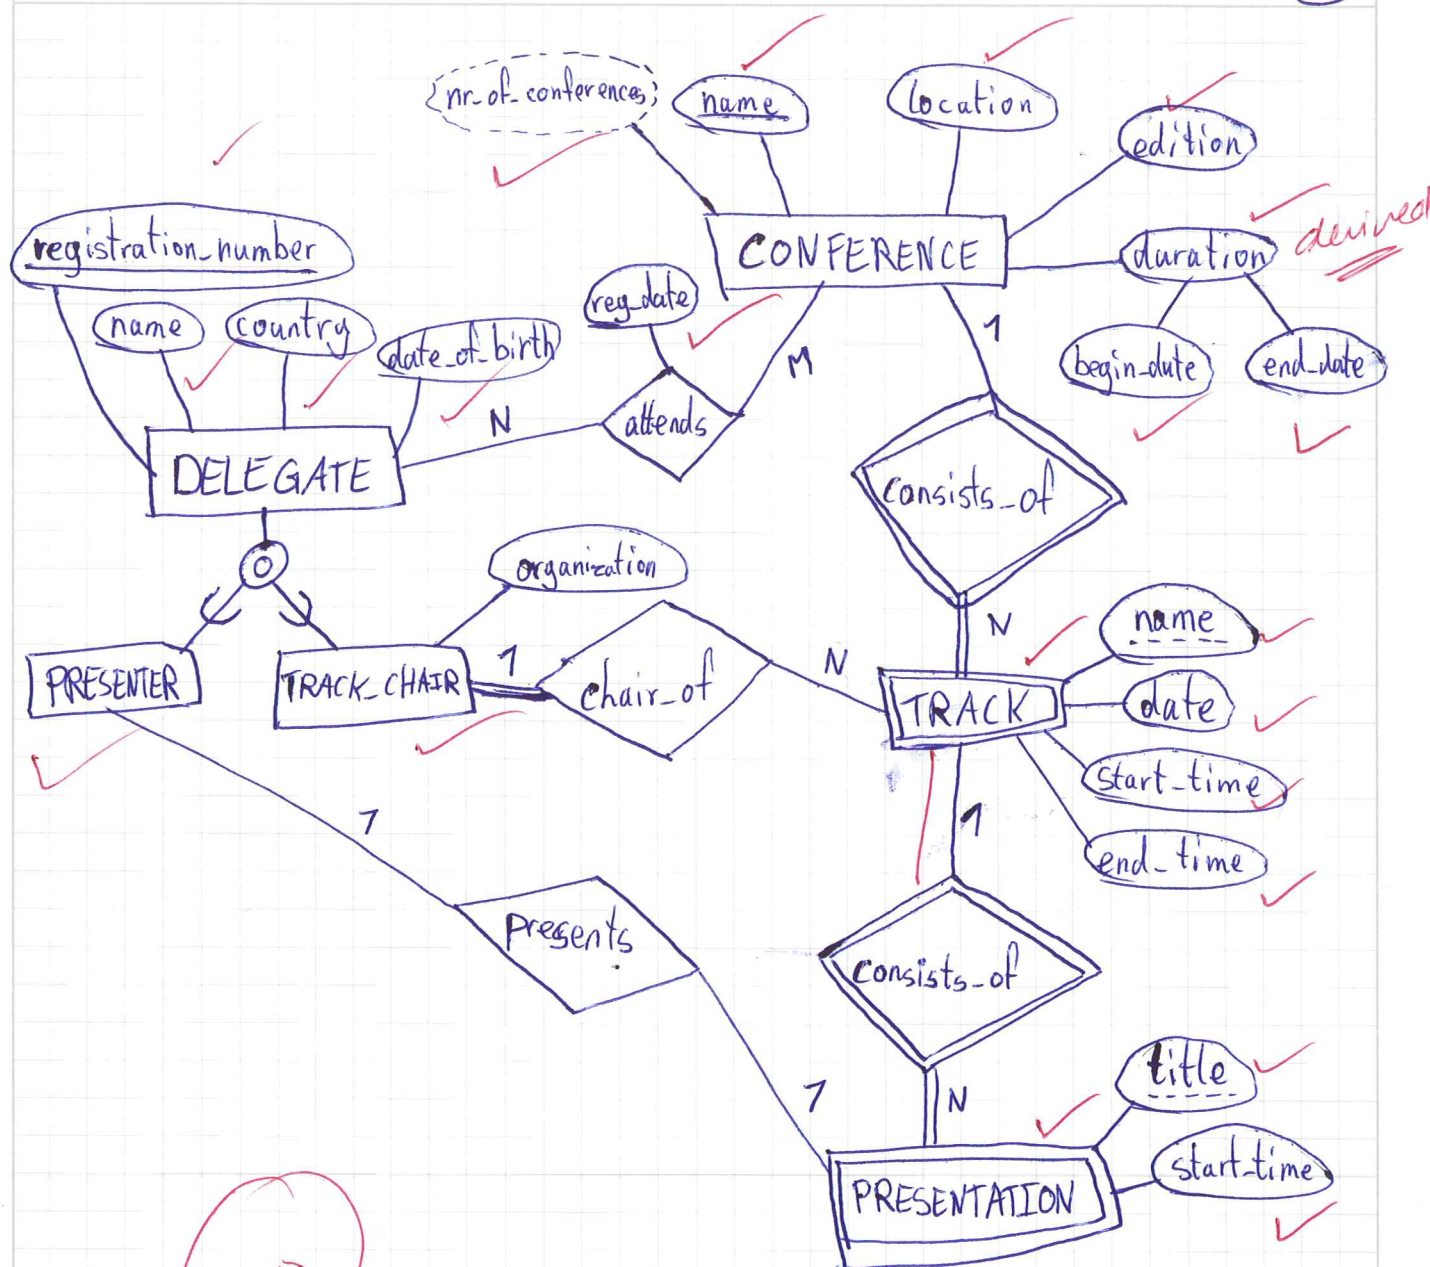 nr_of_conferences
name
location
edition
CONFERENCE
duration
derived
begin_date
end_date
registration_number
name
country
date_of_birth
reg_date
M
1
N
attends
DELEGATE
consists_of
O
organization
PRESENTER
TRACK_CHAIR
1
chair_of
N
N
TRACK
name
date
start_time
end_time
1
1
presents
consists_of
1
N
title
start_time
PRESENTATION